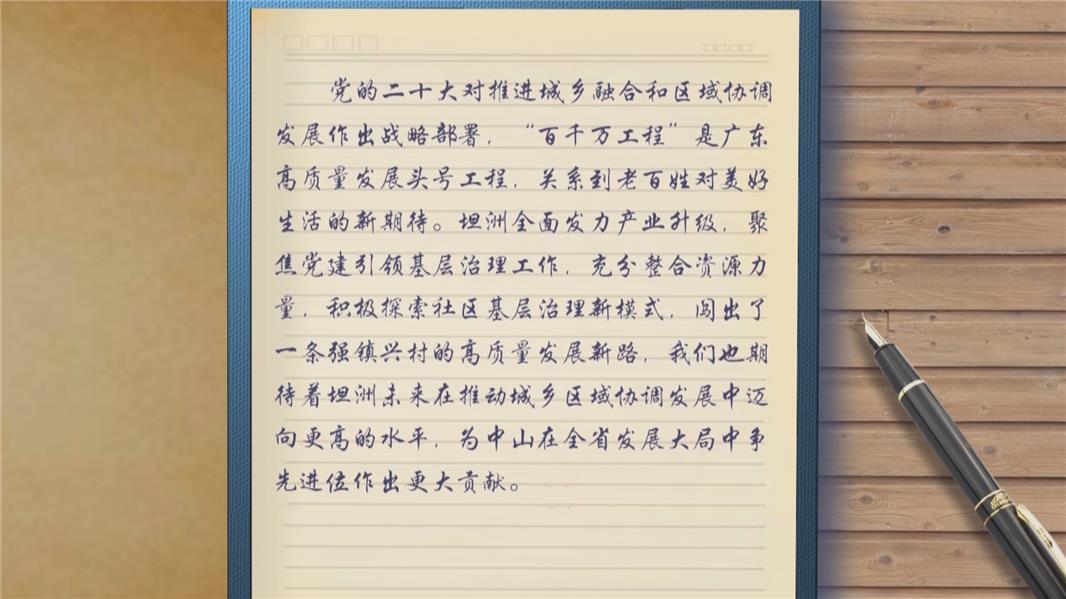 党的二十大对推进城乡融合和区域协调
发展作出战略部署，“百千万工程”是广东
高质量发展头号工程，关系到老百姓对美好
生活的新期待。坦洲全面发力产业升级，聚
焦党建引领基层治理工作，充分整合资源力
量，积极探索社区基层治理新模式，闯出了
一条强镇兴村的高质量发展新路，我们也期
待着坦洲未来在推动城乡区域协调发展中迈
向更高的水平，为中山在全省发展大局中争
先进位作出更大贡献。